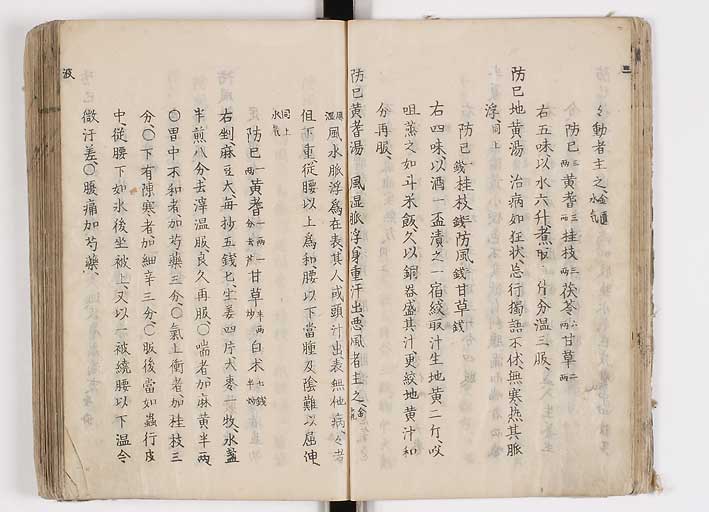 動者主之、金匱水氣
防已三兩黃耆三兩桂枝三兩茯苓六兩甘草二兩
右五味以水六升煮取 升分溫三服、
防已地黃湯 治病如狂狀、忩行獨語不休、無寒熱其脈
浮、同上
防已一錢桂枝錢防風錢甘草錢
右四味以酒一盃漬之一宿絞取汁生地黃二斤、㕮
咀蒸之如斗米飯久以銅器盛其汁、更絞地黃汁和
分再服、
防已黃耆湯 風湿脈浮身重汗出惡風者主之、金
風水脈浮爲在表、其人或頭汁出表無他病、者
伹下重、從腰以上爲和腰以下當腫及陰難以屈伸
同上水氣
防已一兩黃耆一兩一分去芦甘草半兩炒白朮七錢半炒
右剉麻豆大每抄五錢匕、生姜四片大棗一牧、水盞
半煎八分去滓溫服良久再服、〇喘者加麻黃半兩
〇胃中不和者加芍藥三分、〇氣上衝者加桂枝三
分、〇下有陳寒者加細辛三分、〇服後當如蟲行皮
中、從腰下如氷後坐被上、又以一被繞腰以下溫令
微汗差、〇腹痛加芍藥、